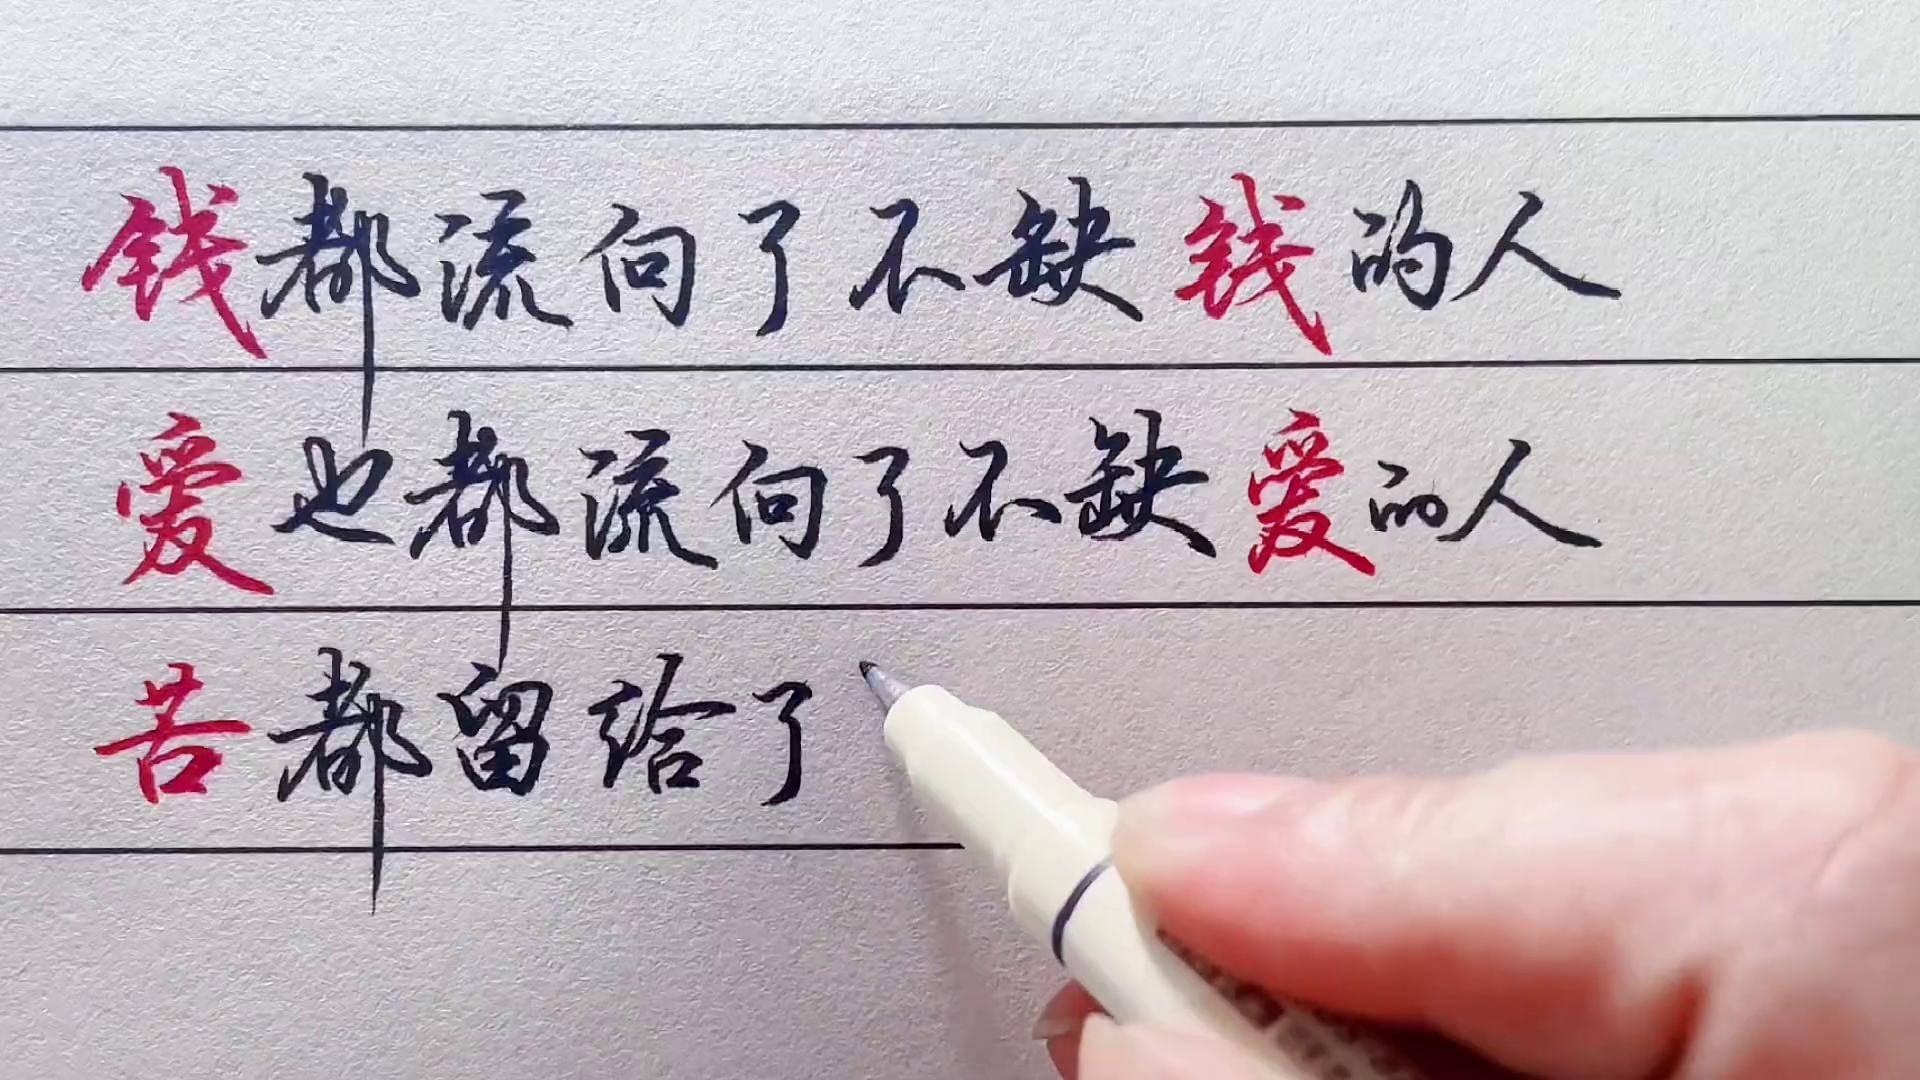 钱都流向了不缺钱的人
爱也都流向了不缺爱的人
苦都留给了